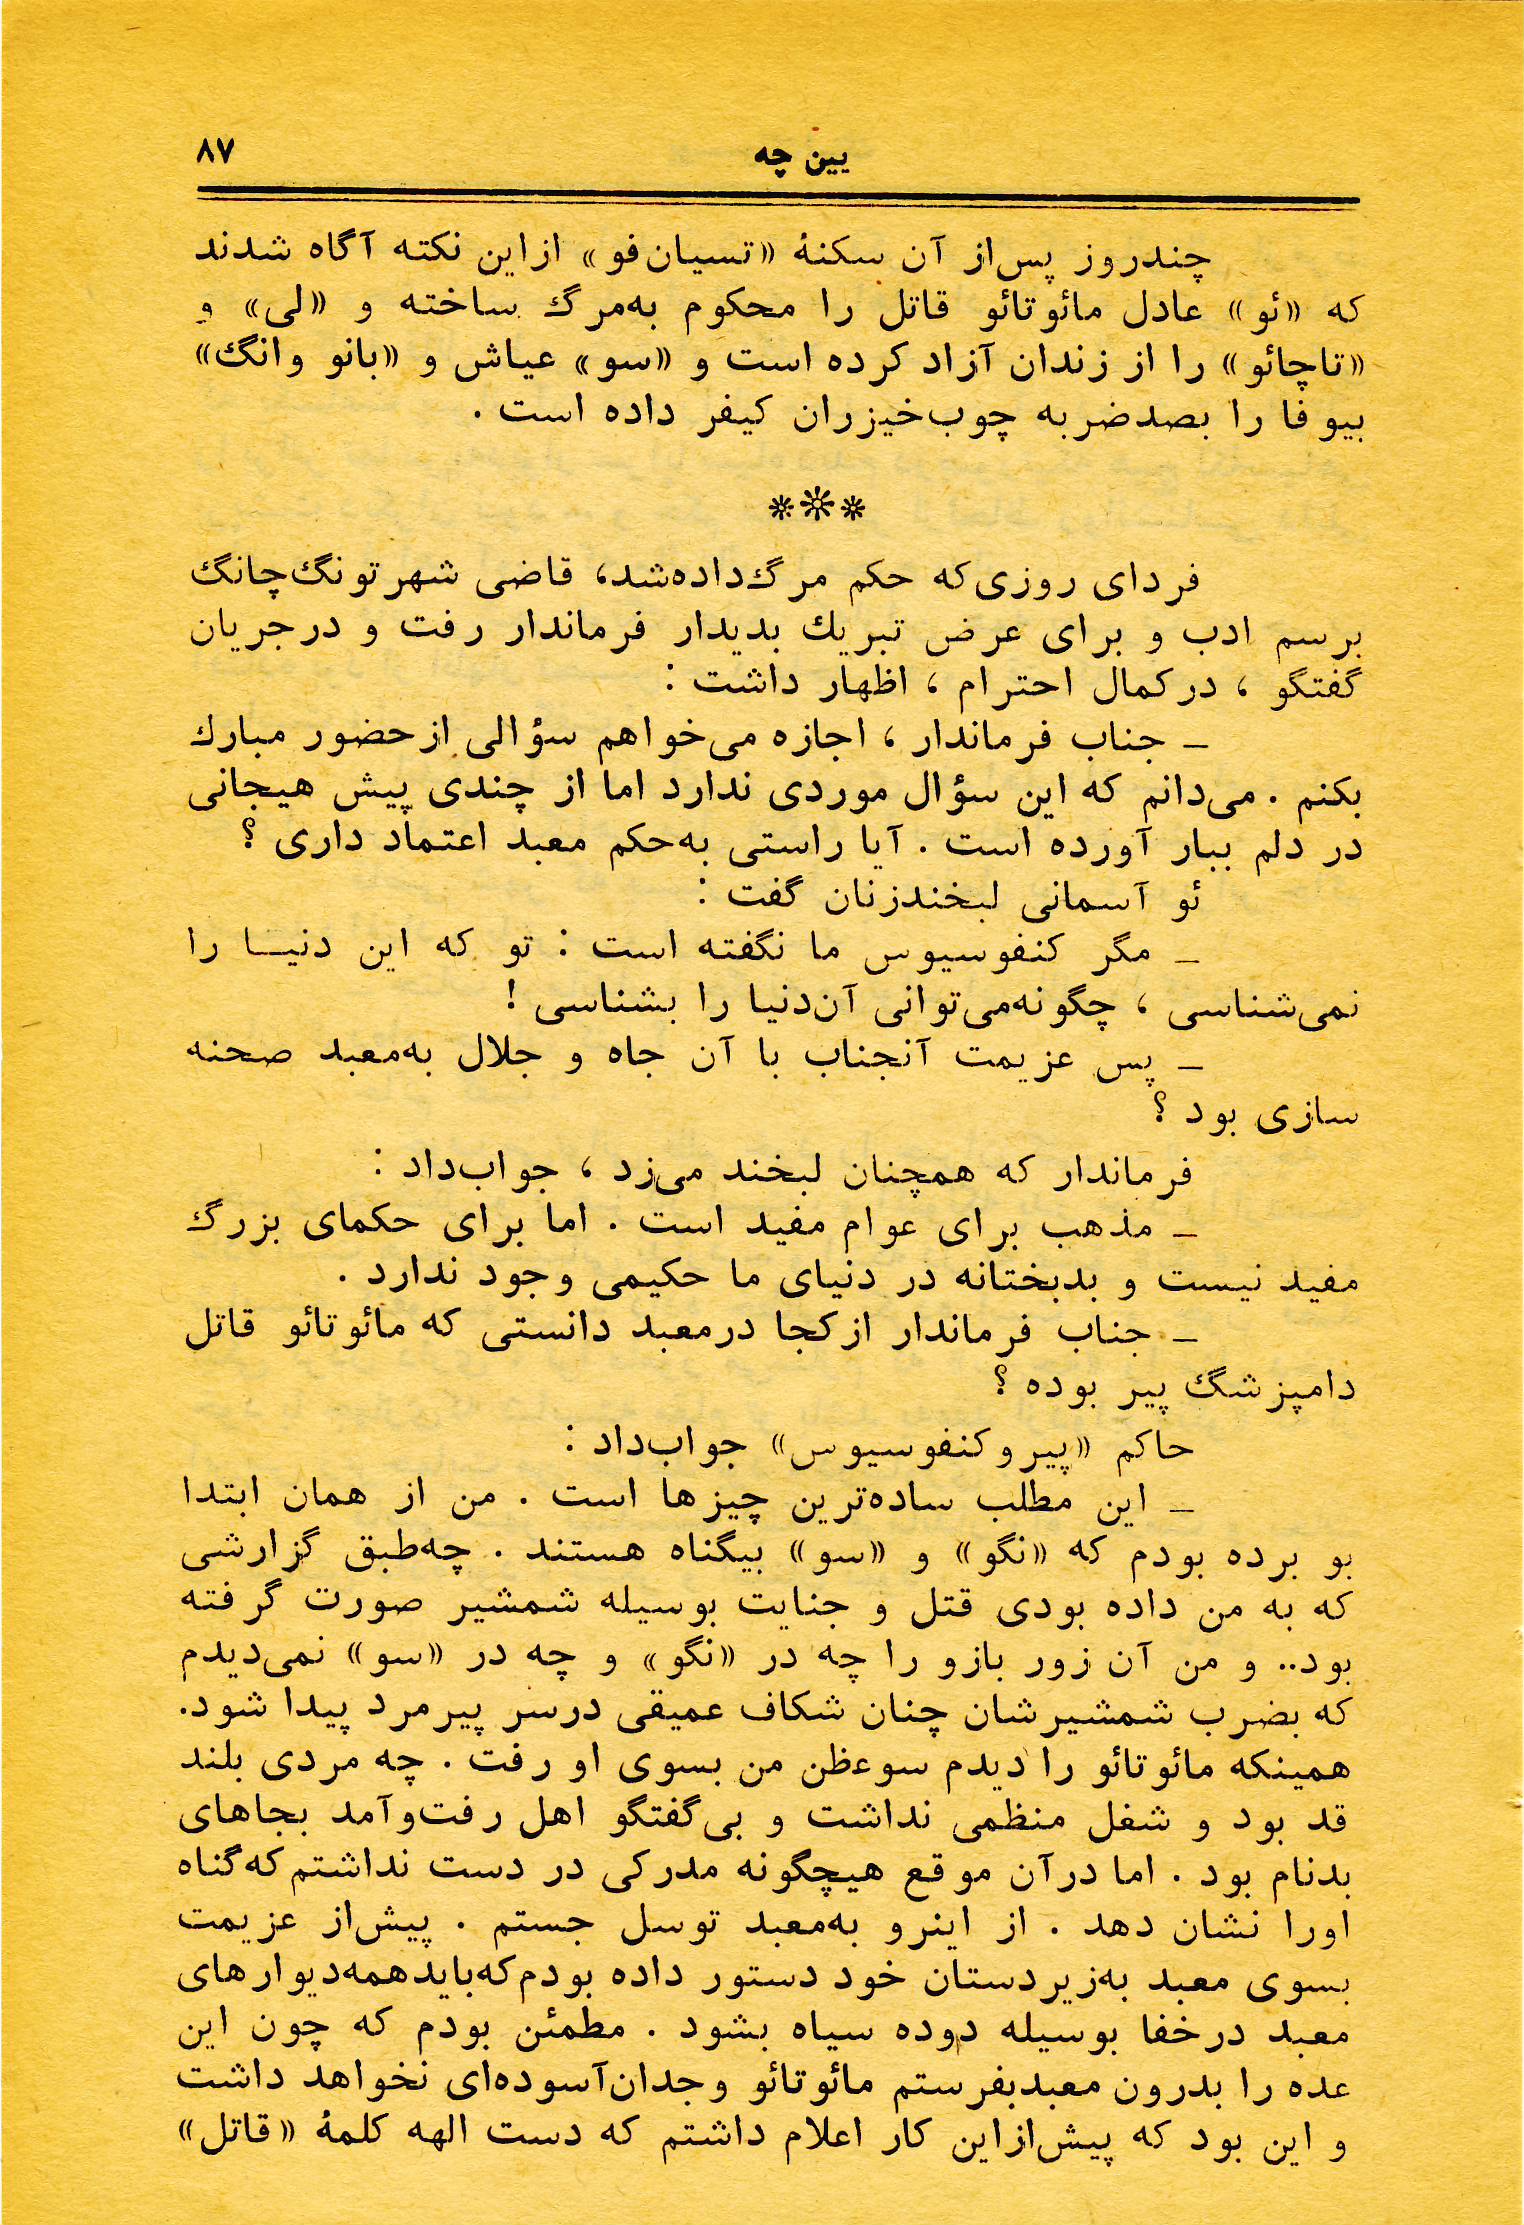 یین چه ۸۷
چندروز پس‌از آن سکنهٔ «تسیان‌فو» ازاین نکته آگاه شدند
که «ئو» عادل مائوتائو قاتل را محکوم به‌مرگ ساخته و «لی» و
«تاچائو» را از زندان آزاد کرده است و «سو» عیاش و «بانو وانگ»
بیوفا را بصدضربه چوب‌خیزران کیفر داده است .
***
فردای روزی‌که حکم مرگ‌داده‌شد، قاضی شهرتونگ‌چانگ
برسم ادب و برای عرض تبریك بدیدار فرماندار رفت و درجریان
گفتگو ، درکمال احترام ، اظهار داشت :
ـ جناب فرماندار ، اجازه می‌خواهم سؤالی ازحضور مبارك
بکنم . می‌دانم که این سؤال موردی ندارد اما از چندی پیش هیجانی
در دلم ببار آورده است . آیا راستی به‌حکم معبد اعتماد داری ؟
ئو آسمانی لبخندزنان گفت :
ـ مگر کنفوسیوس ما نگفته است : تو که این دنیـا را
نمی‌شناسی ، چگونه‌می‌توانی آن‌دنیا را بشناسی !
ـ پس عزیمت آنجناب با آن جاه و جلال به‌معبد صحنه
سازی بود ؟
فرماندار که همچنان لبخند می‌زد ، جواب‌داد :
ـ مذهب برای عوام مفید است . اما برای حکمای بزرگ
مفید نیست و بدبختانه در دنیای ما حکیمی وجود ندارد .
ـ جناب فرماندار ازکجا درمعبد دانستی که مائوتائو قاتل
دامپزشگ پیر بوده ؟
حاکم «پیروکنفوسیوس» جواب‌داد :
ـ این مطلب ساده‌ترین چیزها است . من از همان ابتدا
بو برده بودم که «نگو» و «سو» بیگناه هستند . چه‌طبق گزارشی
که به من داده بودی قتل و جنایت بوسیله شمشیر صورت گرفته
بود.. و من آن زور بازو را چه در «نگو» و چه در «سو» نمی‌دیدم
که بضرب شمشیرشان چنان شکاف عمیقی درسر پیرمرد پیدا شود.
همینکه مائوتائو را دیدم سوءظن من بسوی او رفت . چه مردی بلند
قد بود و شغل منظمی نداشت و بی‌گفتگو اهل رفت‌وآمد بجاهای
بدنام بود . اما درآن موقع هیچگونه مدرکی در دست نداشتم که‌گناه
اورا نشان دهد . از اینرو به‌معبد توسل جستم . پیش‌از عزیمت
بسوی معبد به‌زیردستان خود دستور داده بودم‌که‌باید‌همه‌دیوارهای
معبد درخفا بوسیله دوده سیاه بشود . مطمئن بودم که چون این
عده را بدرون معبدبفرستم مائوتائو وجدان‌آسوده‌ای نخواهد داشت
و این بود که پیش‌ازاین کار اعلام داشتم که دست الهه کلمهٔ «قاتل»